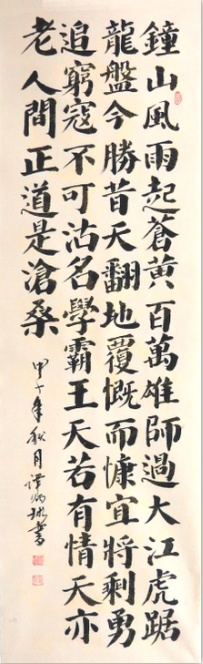 鐘山風雨起蒼黃百萬雄師過大江虎踞
龍盤今勝昔天翻地覆慨而慷宜將剩勇
追窮寇不可沽名學霸王天若有情天亦
老人間正道是滄桑
甲年秋月譚炳書